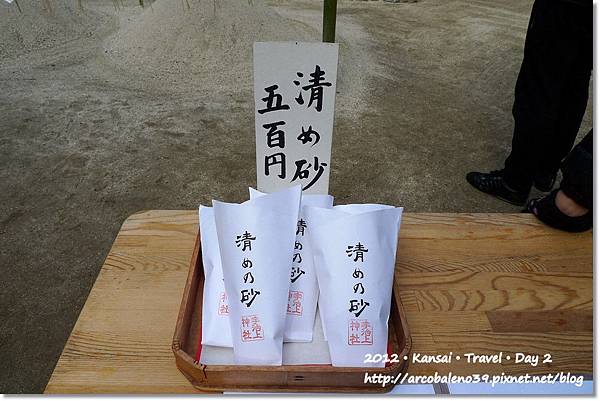 清め砂
五百円
清めの砂
宇治上
神社
清めの砂
清めの砂
宇治上
神社
2012・Kansai・Travel・Day 2
http://arcobaleno39.pixnet.net/blog